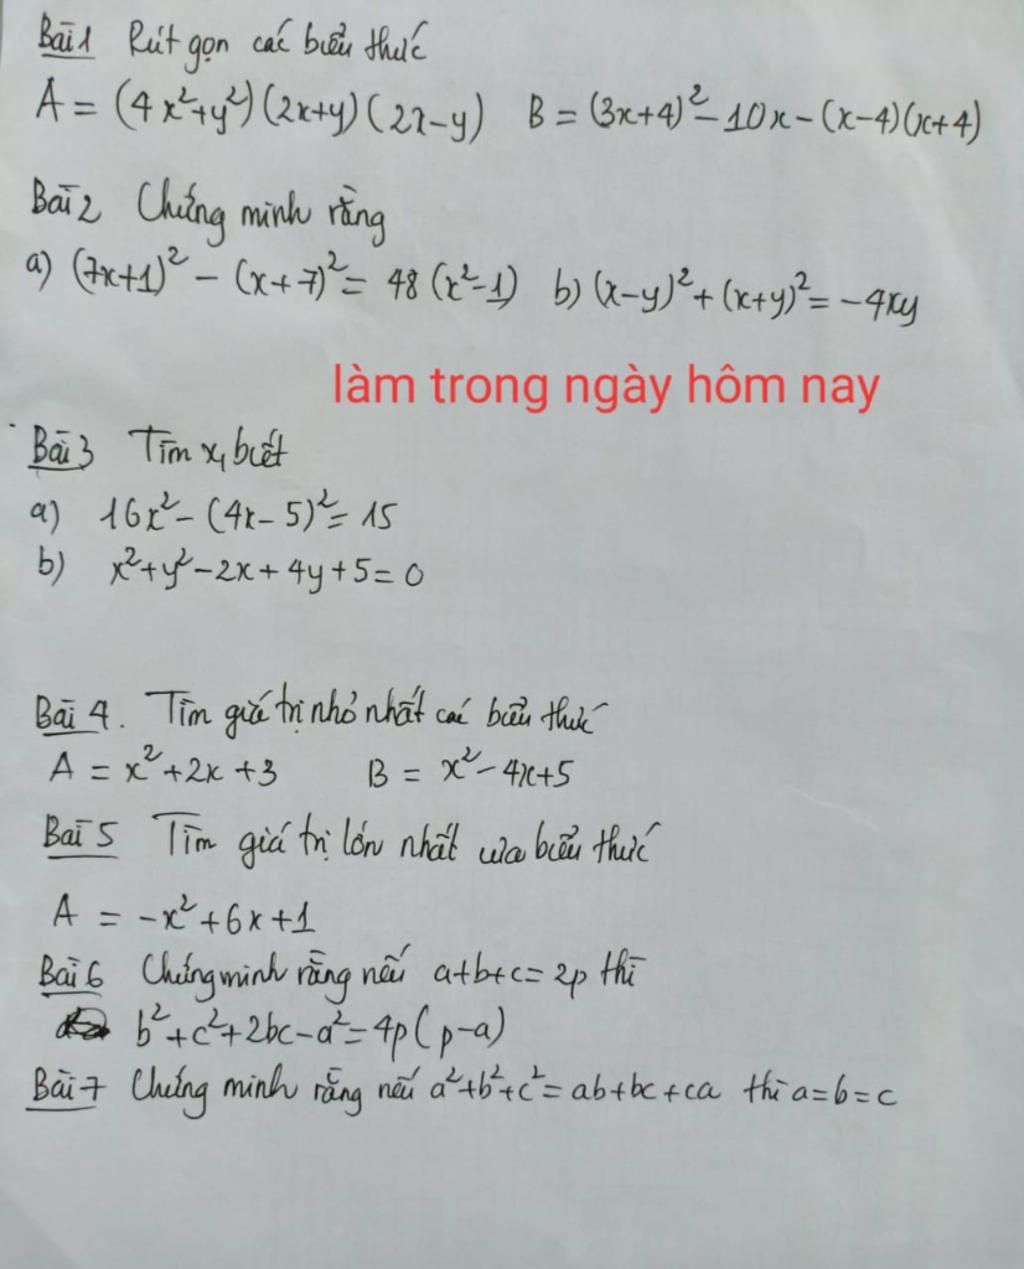 Bài 1 Rút gọn các biểu thức
A = (4x²+y²)(2x+y)(2x-y) B = (3x+4)² - 10x - (x-4)(x+4)
Bài 2 Chứng minh rằng
a) (7x+1)² - (x+7)² = 48(x²-1) b) (x-y)² + (x+y)² = -4xy
làm trong ngày hôm nay
Bài 3 Tìm x, biết
a) 16x² - (4x-5)² = 15
b) x²+y²-2x+4y+5=0
Bài 4. Tìm giá trị nhỏ nhất các biểu thức
A = x²+2x+3 B = x²-4x+5
Bài 5 Tìm giá trị lớn nhất của biểu thức
A = -x²+6x+1
Bài 6 Chứng minh rằng nếu a+b+c=2p thì
b²+c²+2bc-a²=4p(p-a)
Bài 7 Chứng minh rằng nếu a²+b²+c²=ab+bc+ca thì a=b=c